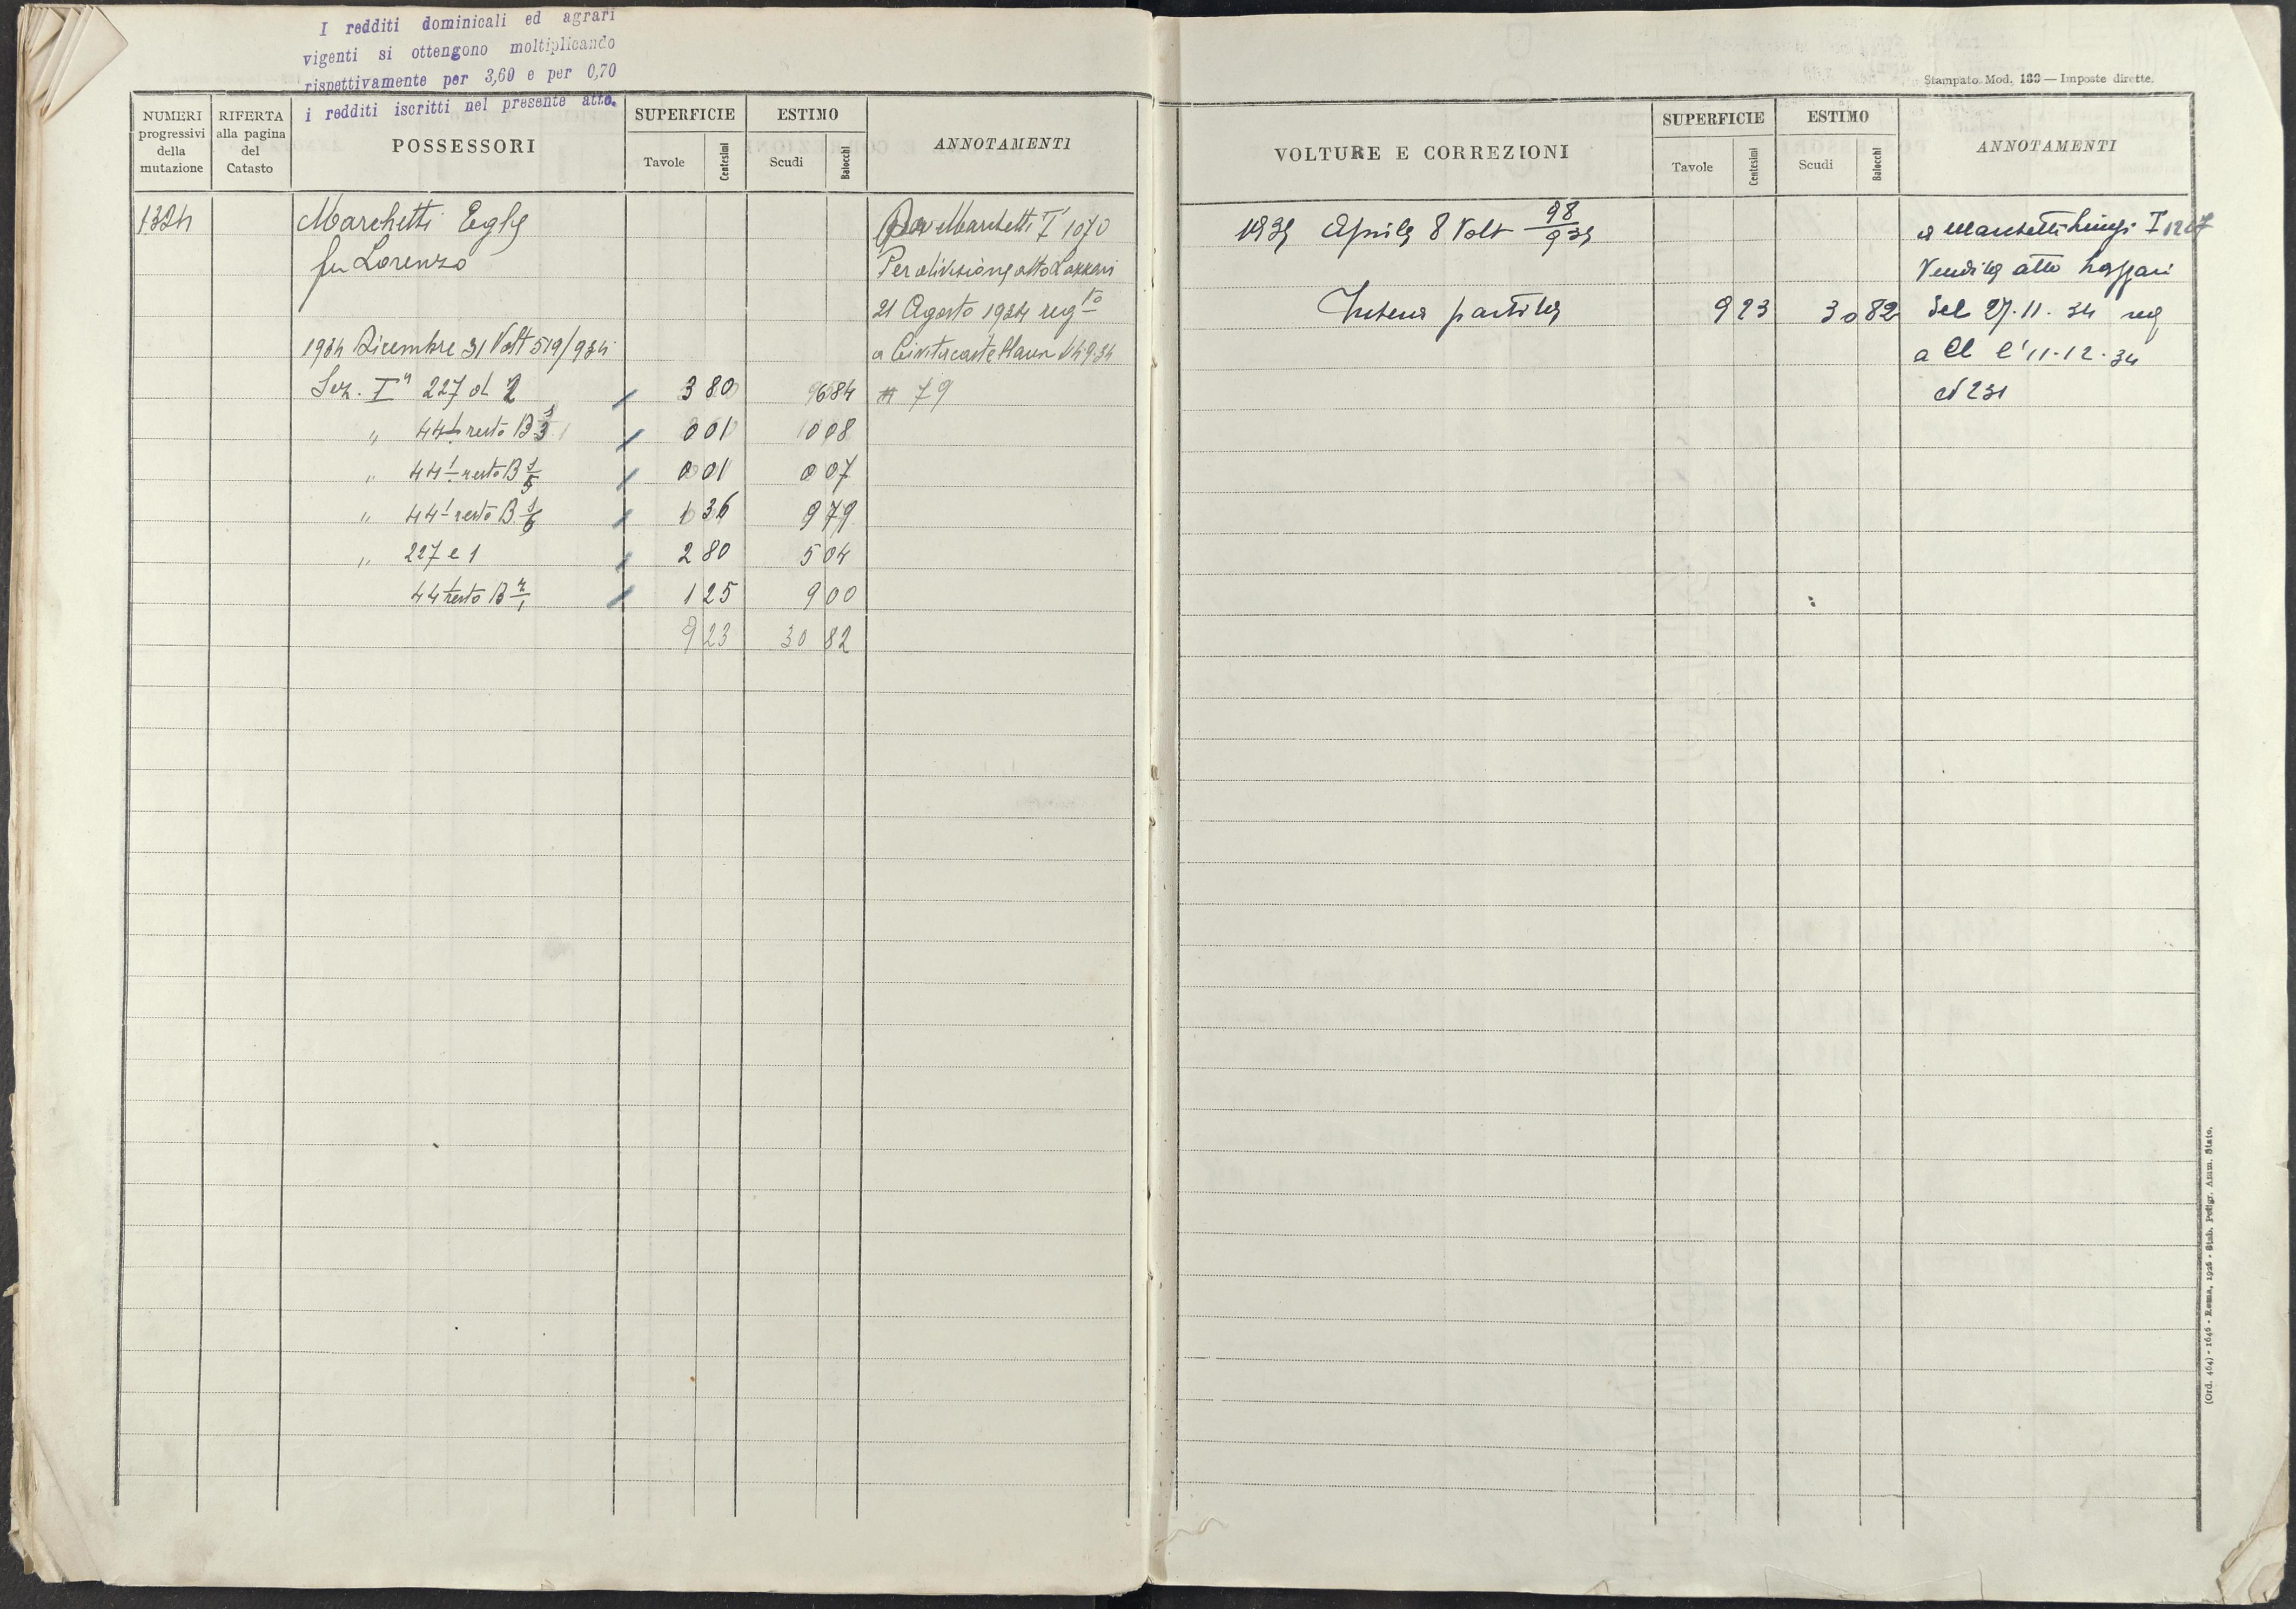 I redditi dominicali ed agrari
vigenti si ottengono moltiplicando
rispettivamente per 3,60 e per 0,70
i redditi iscritti nel presente atto.
NUMERI progressivi della mutazione
RIFERTA alla pagina del Catasto
POSSESSORI
SUPERFICIE
Tavole Centesimi
ESTIMO
Scudi Baiocchi
ANNOTAMENTI
1324 Marchetti Egle Da Marchetti T 1070
fu Lorenzo Per divisione atto Lazzari
21 Agosto 1934 reg to
1934 Dicembre 31 Volt 519/934 a Civitacastellana
Sez. I a 227 d 2 3 80 6 84 # 79
" 44 resto B 0 01 0 08
" 44 1 resto B 1/5 0 01 0 07
" 44 1 resto B 1/6 1 36 9 79
" 227 e 1 2 80 5 04
44 resto B 1 25 9 00
9 23 30 82
Stampato Mod. 180 — Imposte dirette.
VOLTURE E CORREZIONI
SUPERFICIE
Tavole Centesimi
ESTIMO
Scudi Baiocchi
ANNOTAMENTI
1935 Aprile 8 Volt 98/935 a Marchetti Luigi T
Vendita atto Lazzari
Intera partita 9 23 30 82 del 27.11.34 reg
a l'11.12.34
N 231
(Ord. 464) - 1646 - Roma, 1926 - Stab. Poligr. Amm. Stato.